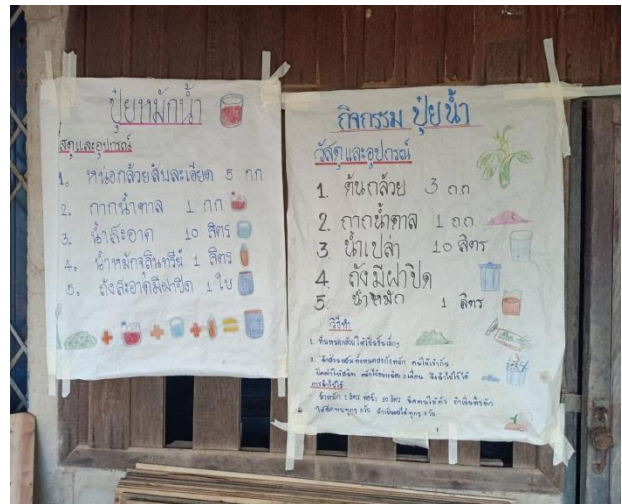 ปุ๋ยหมักน้ำ
วัสดุและอุปกรณ์
1. หน่อกล้วยสับละเอียด 5 กก
2. กากน้ำตาล 1 กก
3. น้ำสะอาด 10 ลิตร
4. น้ำหมักจุลินทรีย์ 1 ลิตร
5. ถังสะอาดมีฝาปิด 1 ใบ
กิจกรรม ปุ๋ยน้ำ
วัสดุและอุปกรณ์
1. ต้นกล้วย 3 กก
2. กากน้ำตาล 1 กก
3 น้ำเปล่า 10 ลิตร
4. ถังมีฝาปิด
5 น้ำหมัก 1 ลิตร
วิธีทำ
1. หั่นหน่อกล้วยให้เป็นชิ้นเล็กๆ
2. คนให้เข้ากัน